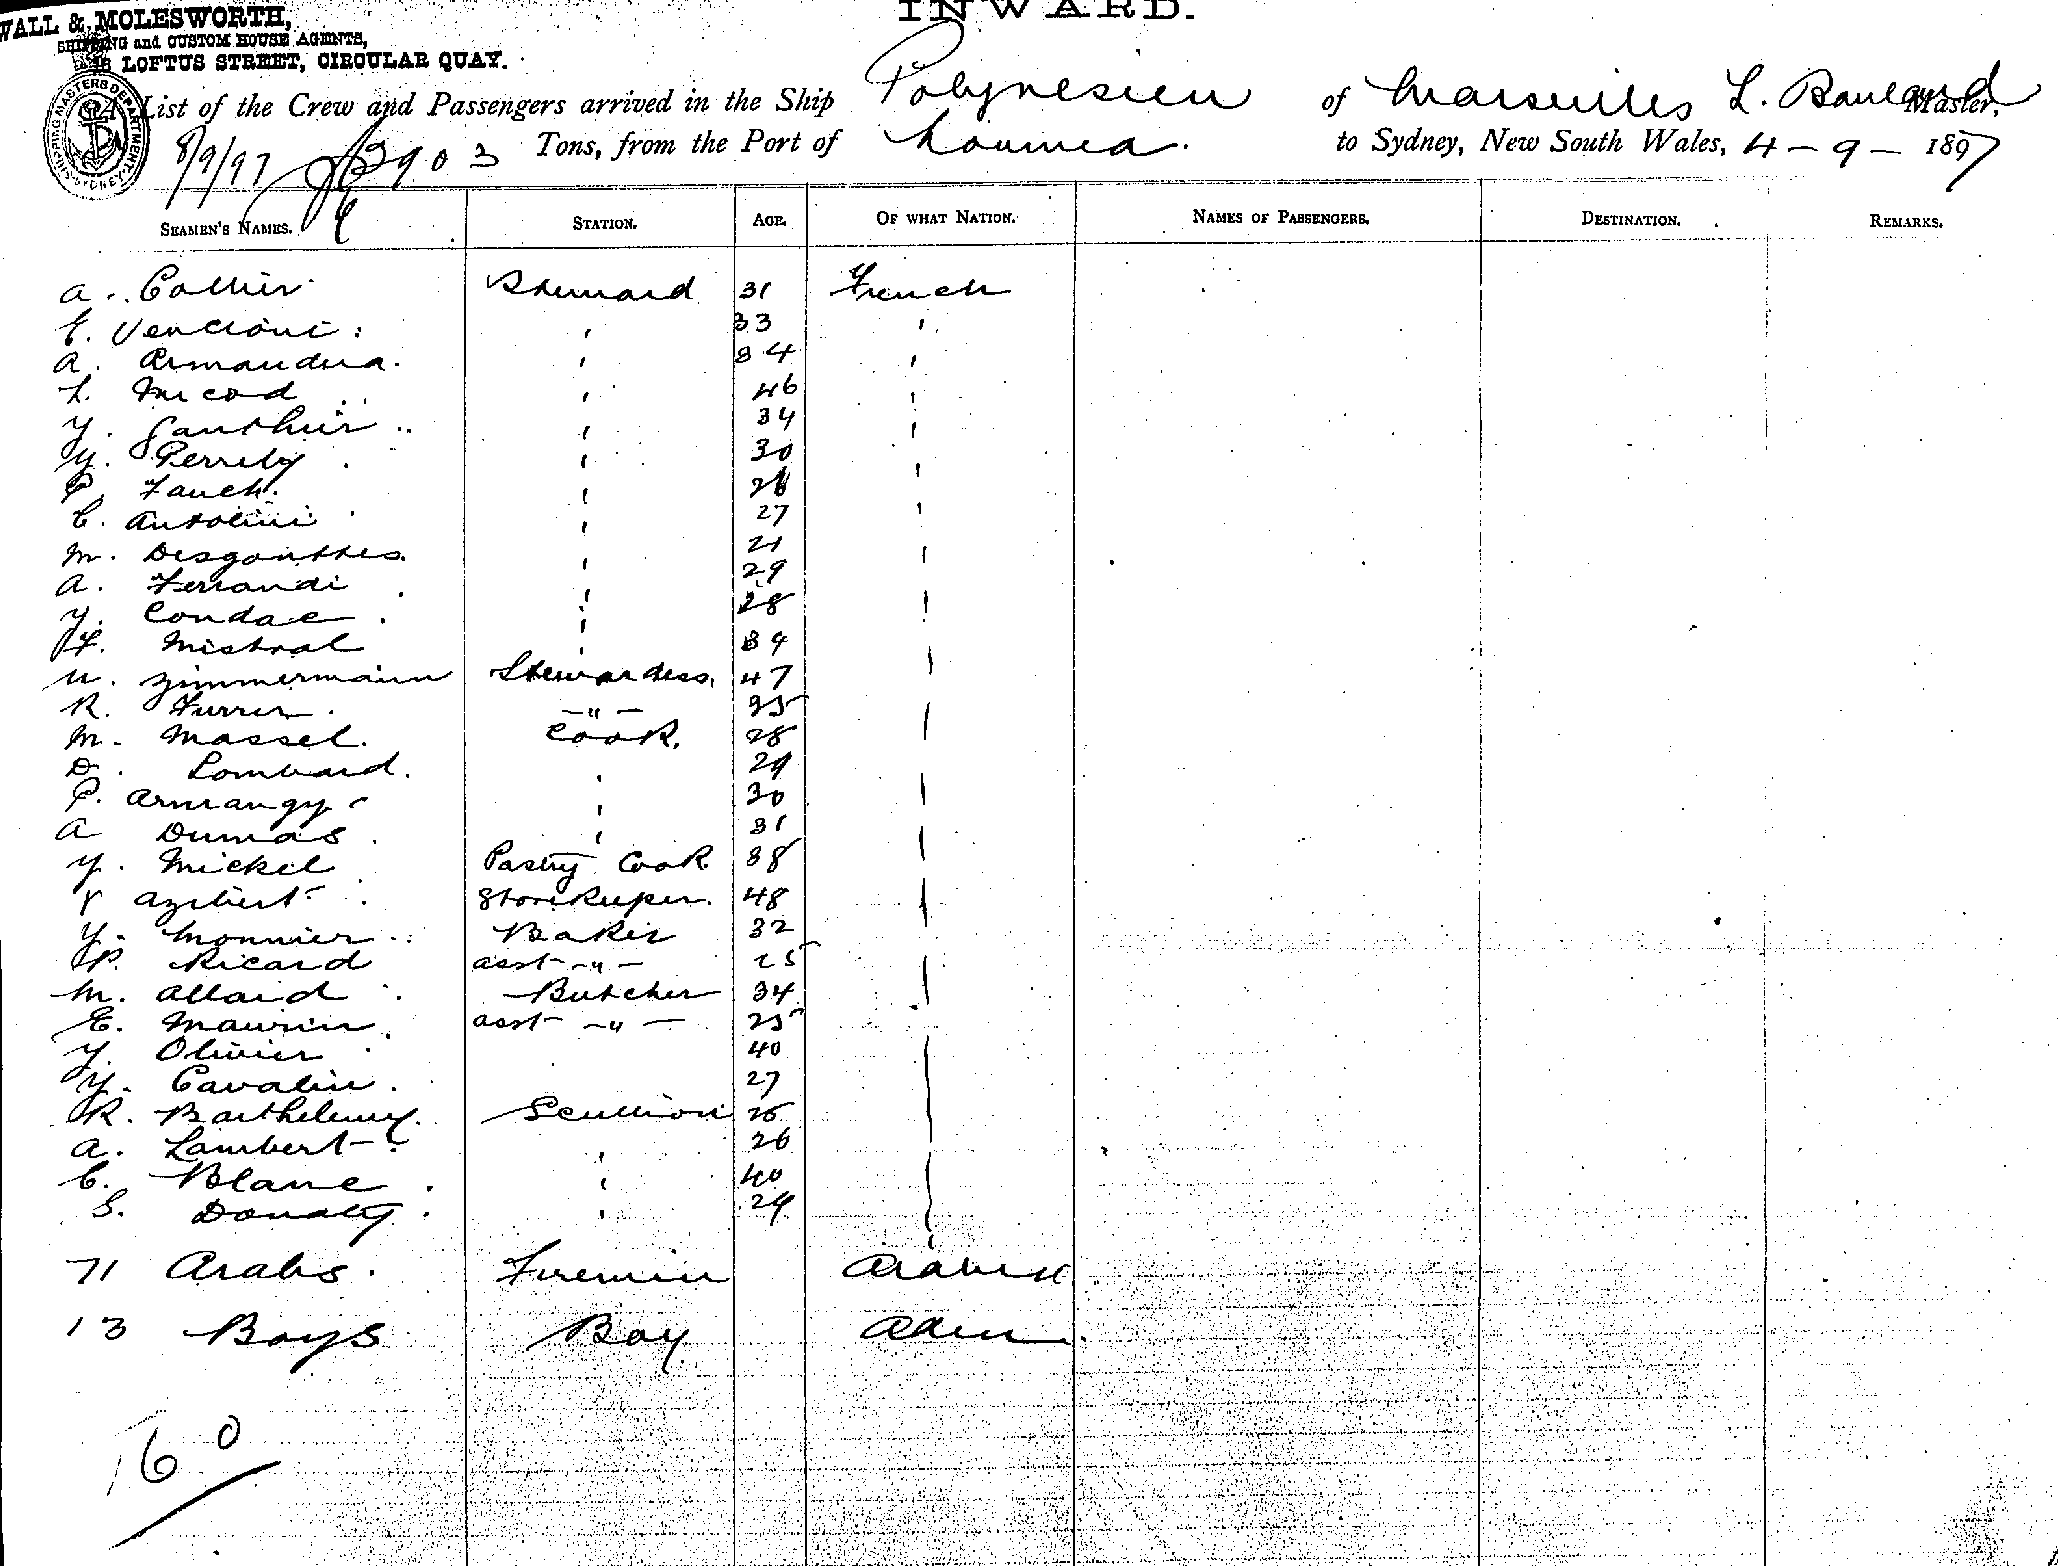 INWARD.
WALL & MOLESWORTH,
SHIPPING and CUSTOM HOUSE AGENTS,
LOFTUS STREET, CIRCULAR QUAY.
List of the Crew and Passengers arrived in the Ship Polynesien of Marseilles L. Master,
8/9/97 3903 Tons, from the Port of Noumea. to Sydney, New South Wales, 4-9-1897
SEAMEN'S NAMES. STATION. AGE. OF WHAT NATION. NAMES OF PASSENGERS. DESTINATION. REMARKS.
A. Steward 31 French
E. Vencioni ' 33 '
A. ' 34 '
L. Micod ' 46 '
Y. Gauthier ' 34 '
Y. ' 30 '
P. Fauch. ' '
C. Antolini ' 27 '
M. Desgouttes. ' 21 '
A. Ferrandi ' 29
Y. Condac ' 28 '
F. Mistral ' 39
M. Zimmermann Stewardess, 47 '
R. Furrer -"- 35
M. Massel. Cook. 28 '
D. Lombard. ' 29
P. Armangy ' 30 '
A Dumas ' 31 '
Y. Mickel Pastry Cook 38
Azibert Storekeeper. 48 '
Y. Monnier Baker 32
P. Ricard asst -"- 25
M. Allard Butcher 34
E. Maurin asst -"- 25
Y. Olivier 40
Y. Cavalin 27
R. Barthelemy. Scullion
A. Lambert ' 26
C. Blanc ' 40
S. Donaty ' 29
71 Arabs. Firemen
13 Boys Boy Aden
160